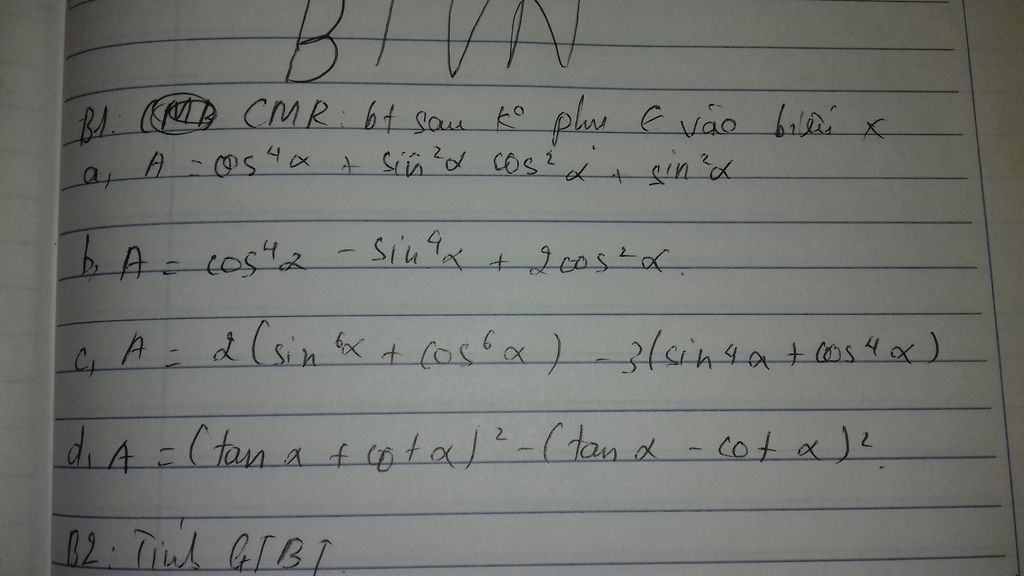 BTVN
B1: CMR: bt sau ko phụ ∈ vào biến x
a, A = cos⁴α + sin²α cos²α + sin²α
b, A = cos⁴α - sin⁴α + 2cos²α.
c, A = 2(sin⁶α + cos⁶α) - 3(sin4α + cos⁴α)
d, A = (tan α + cot α)² - (tan α - cot α)².
B2: Tính GTBT.